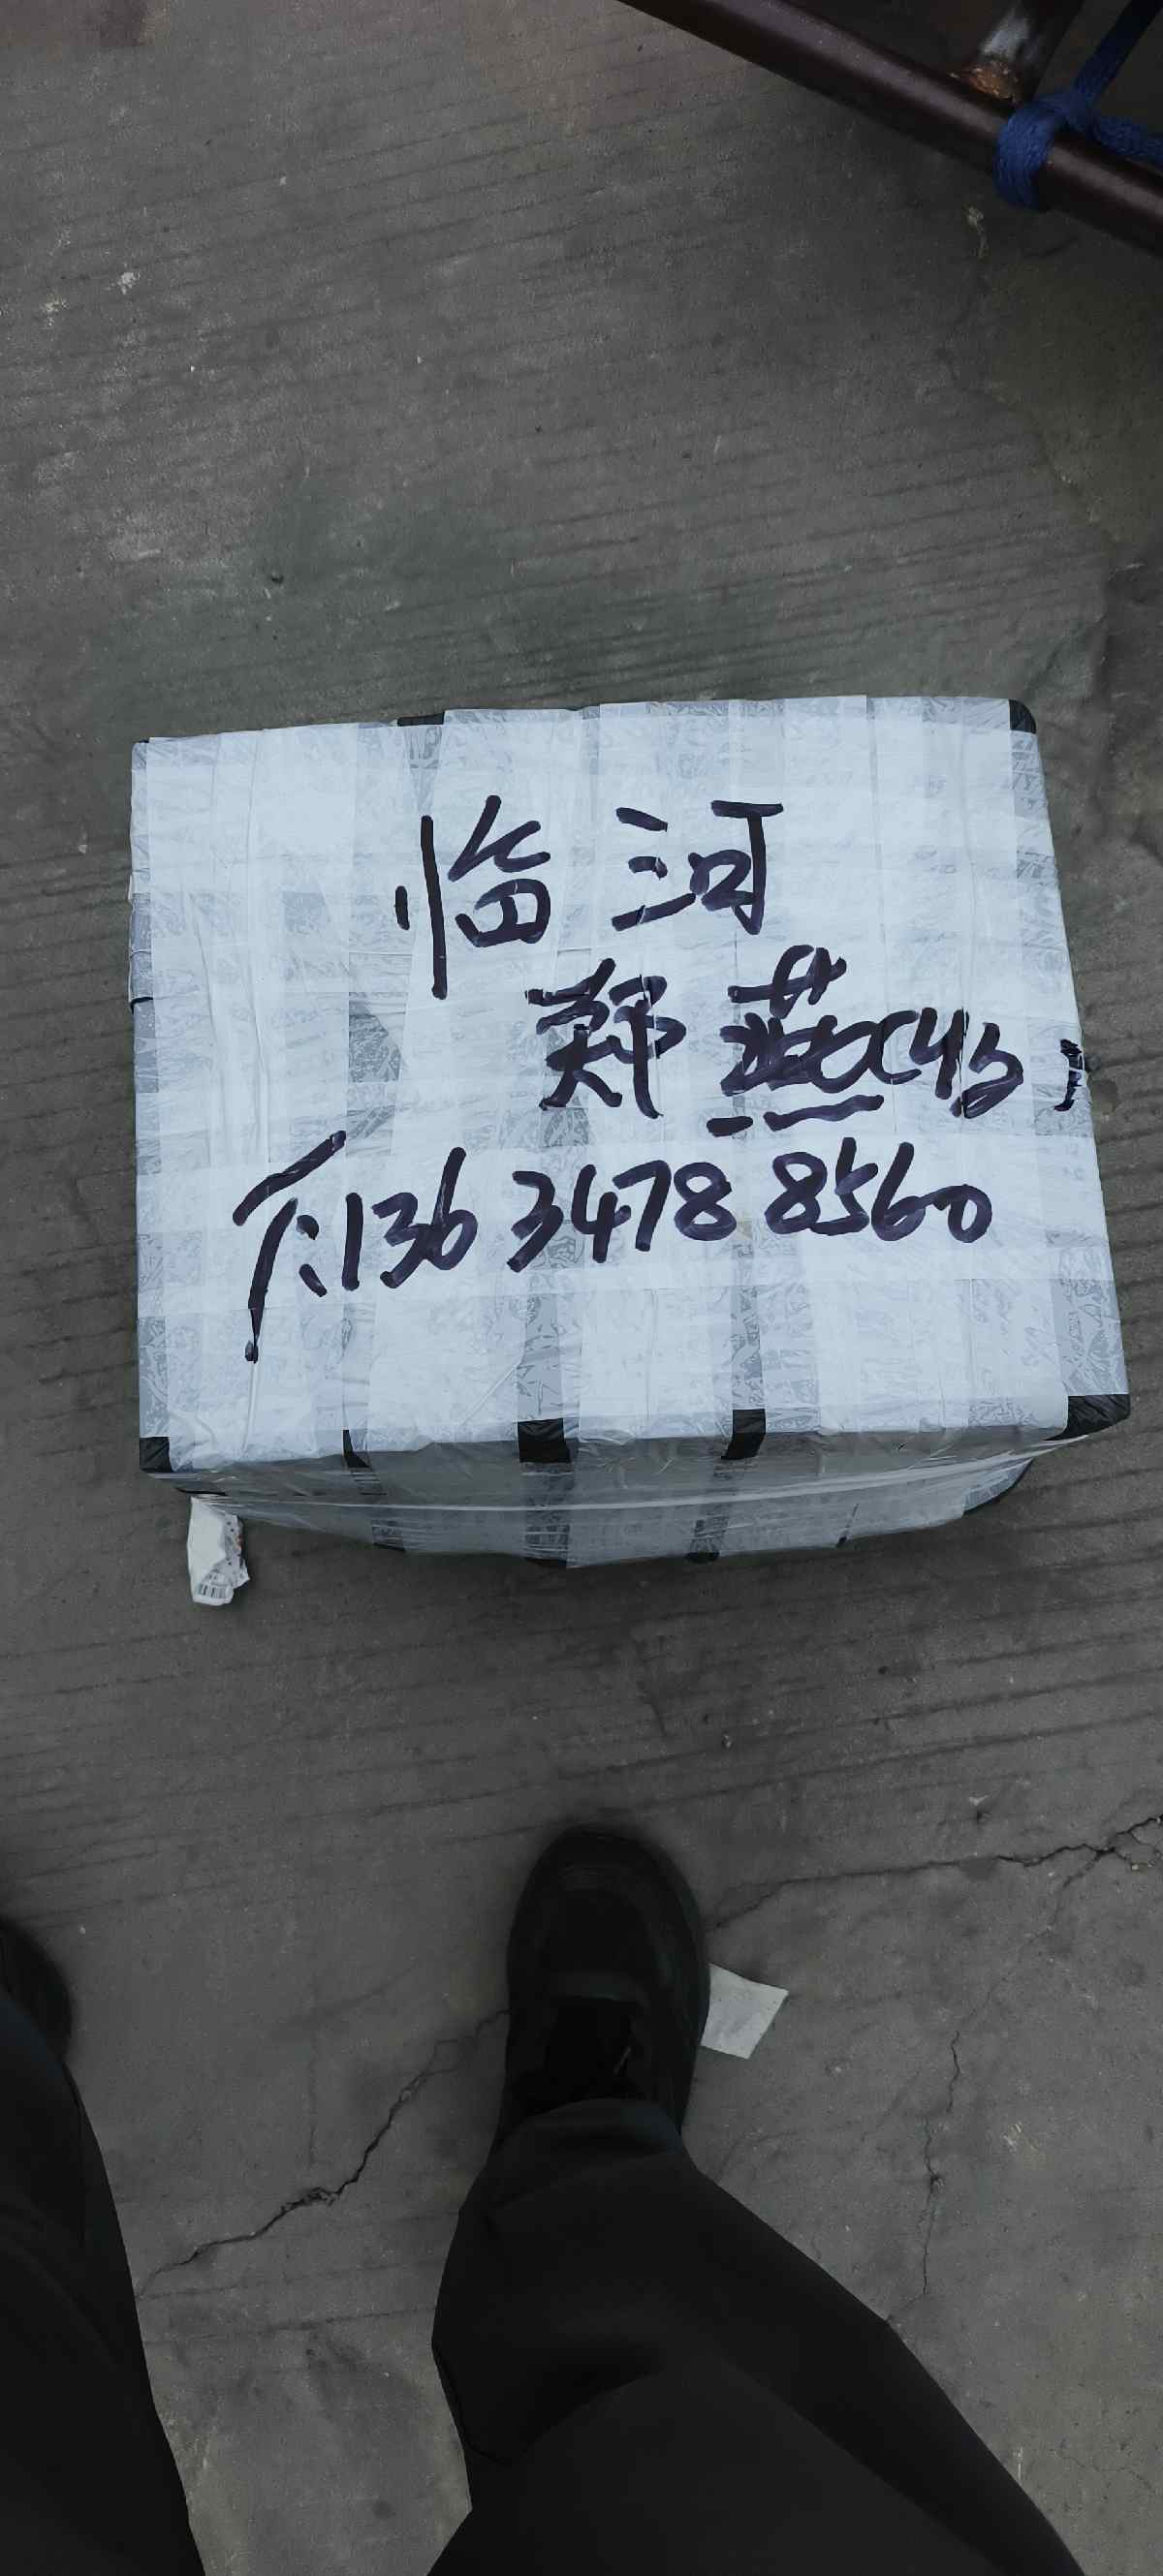 临河
郑燕(45
下:136 3478 8560